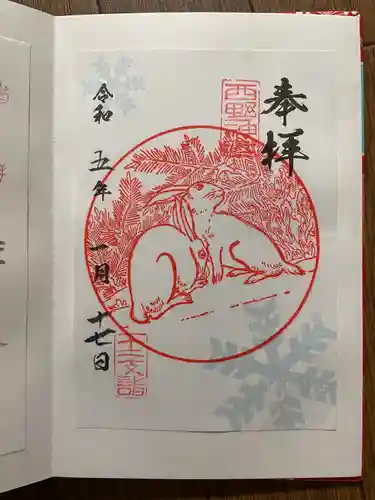 奉拝
西野神社
令和五年一月十七日
干支詣